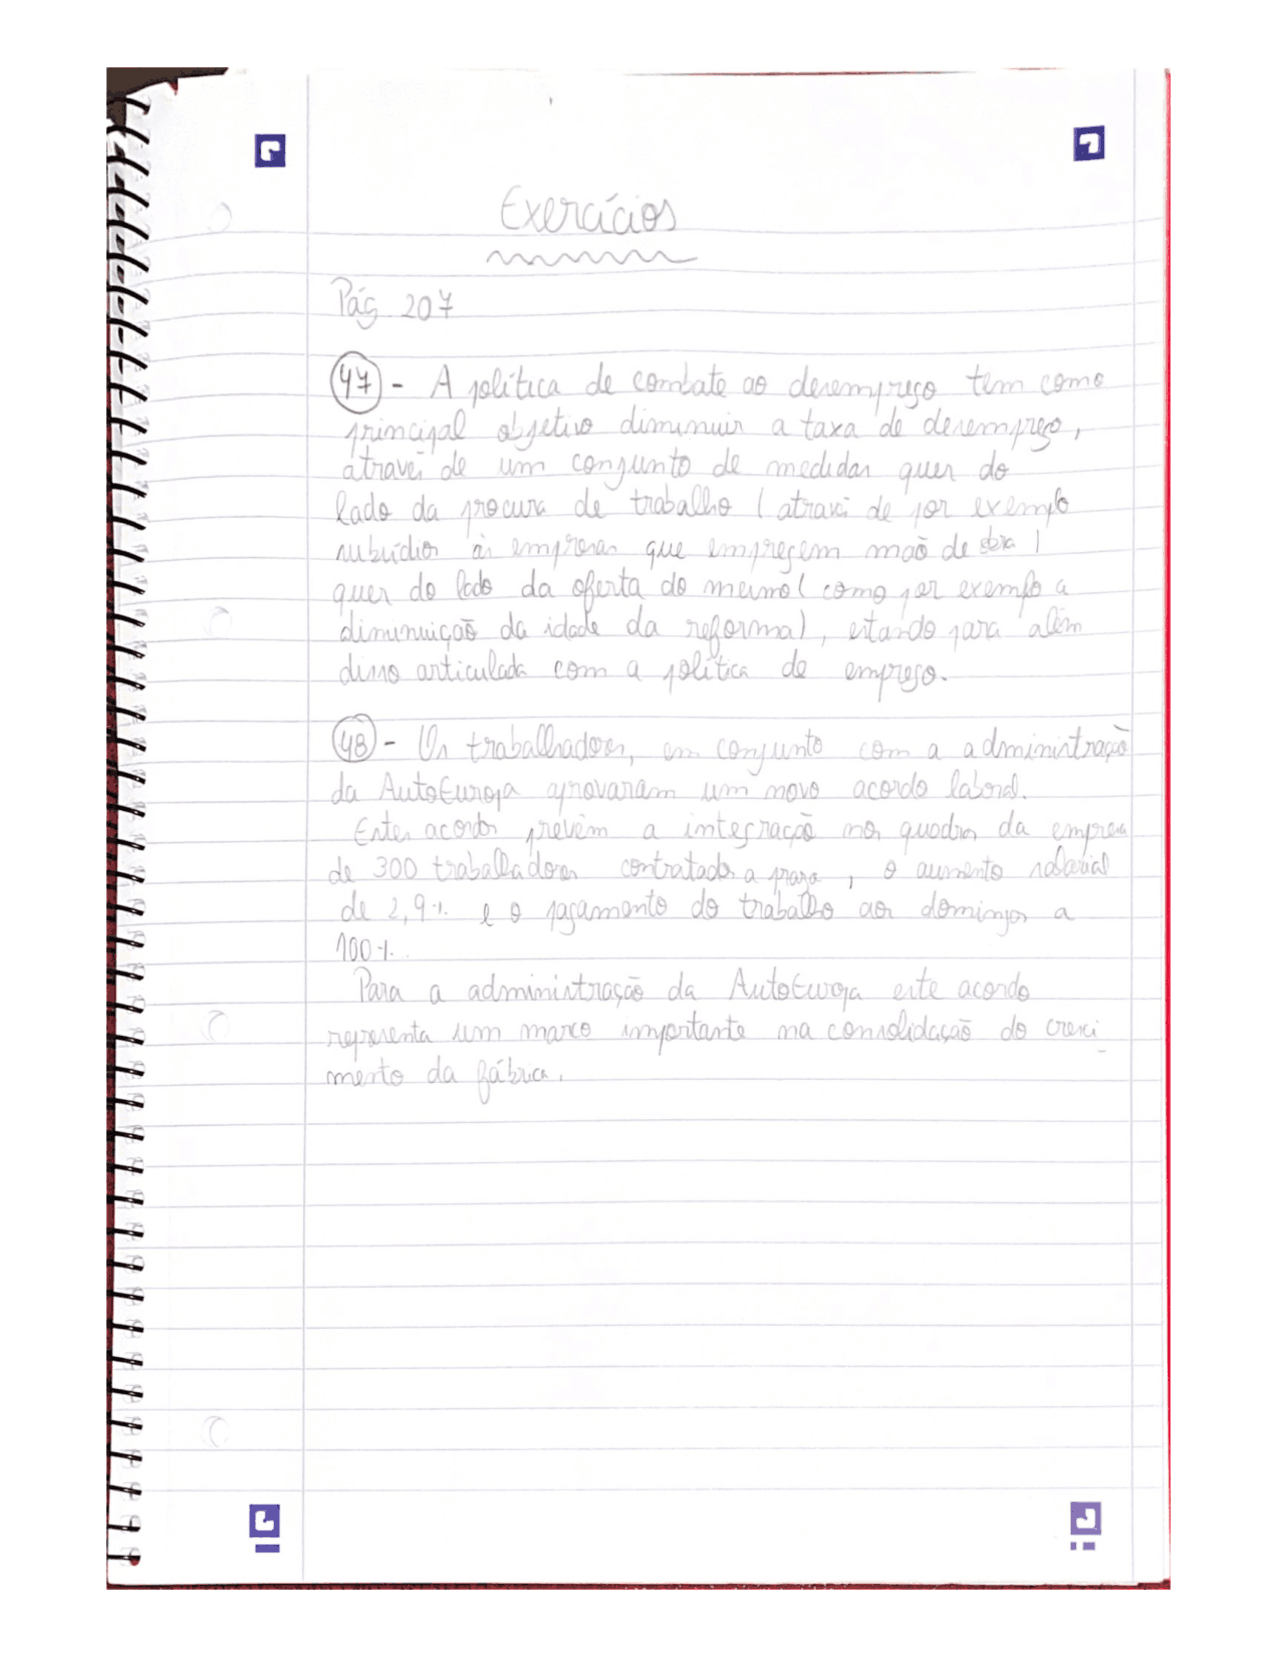 Exercícios
Pág 207
47 - A política de combate ao desemprego tem como
principal objetivo diminuir a taxa de desemprego,
através de um conjunto de medidas quer do
lado da procura de trabalho (através de por exemplo
subsídios às empresas que empregem mão de obra)
quer do lado da oferta do mesmo (como por exemplo a
diminuição da idade da reforma), estando para além
disso articulada com a política de emprego.
48 - Os trabalhadores, em conjunto com a administração
da AutoEuropa aprovaram um novo acordo laboral.
Estes acordos prevêm a integração nos quadros da empresa
de 300 trabalhadores contratados a prazo, o aumento salarial
de 2,9% e o pagamento do trabalho aos domingos a
100%.
Para a administração da AutoEuropa este acordo
representa um marco importante na consolidação do cresci
mento da fábrica.